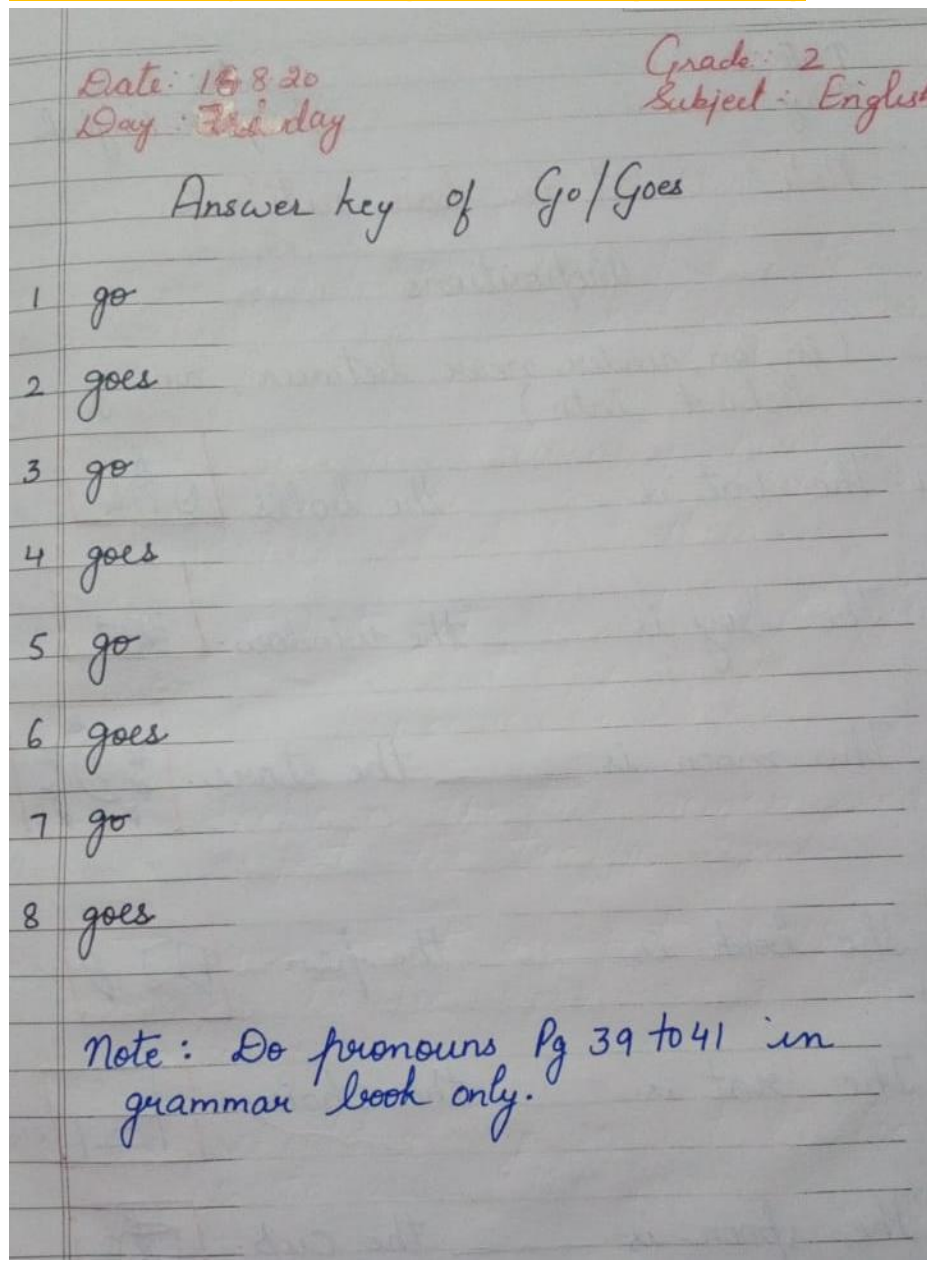 Date: 8.20
Grade: 2
Day: Friday
Subject: English
Answer key of Go/Goes
1 go
2 goes
3 go
4 goes
5 go
6 goes
7 go
8 goes
Note: Do pronouns Pg 39 to 41 in
grammar book only.